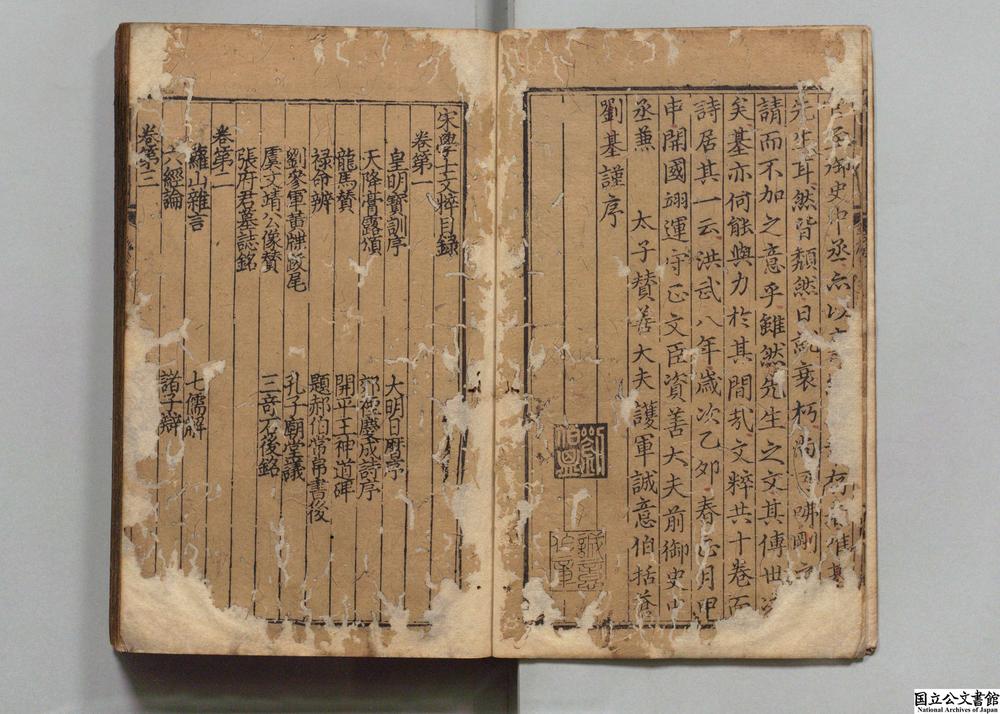 御史中丞亦以
先生耳然皆頹然日就衰朽尚可哂剛
請而不加之意乎雖然先生之文其傳世
矣基亦何能與力於其間哉文粹共十卷而
詩居其一云洪武八年歲次乙卯春正月甲
申開國翊運守正文臣資善大夫前御史中
丞兼 太子贊善大夫護軍誠意伯括蒼
劉基謹序
劉伯溫
誠意伯章
宋學士文粹目錄
卷第一
皇明寶訓序 大明日曆序
天降膏露頌 郊禋慶成詩序
龍馬贊 開平王神道碑
祿命辨 題郝伯常帛書後
劉參軍黃牒跋尾 孔子廟堂議
虞文靖公像贊 三竒石後銘
張府君墓誌銘
卷第二
蘿山雜言 七儒解
六經論 諸子辯
卷第三
国立公文書館
National Archives of Japan